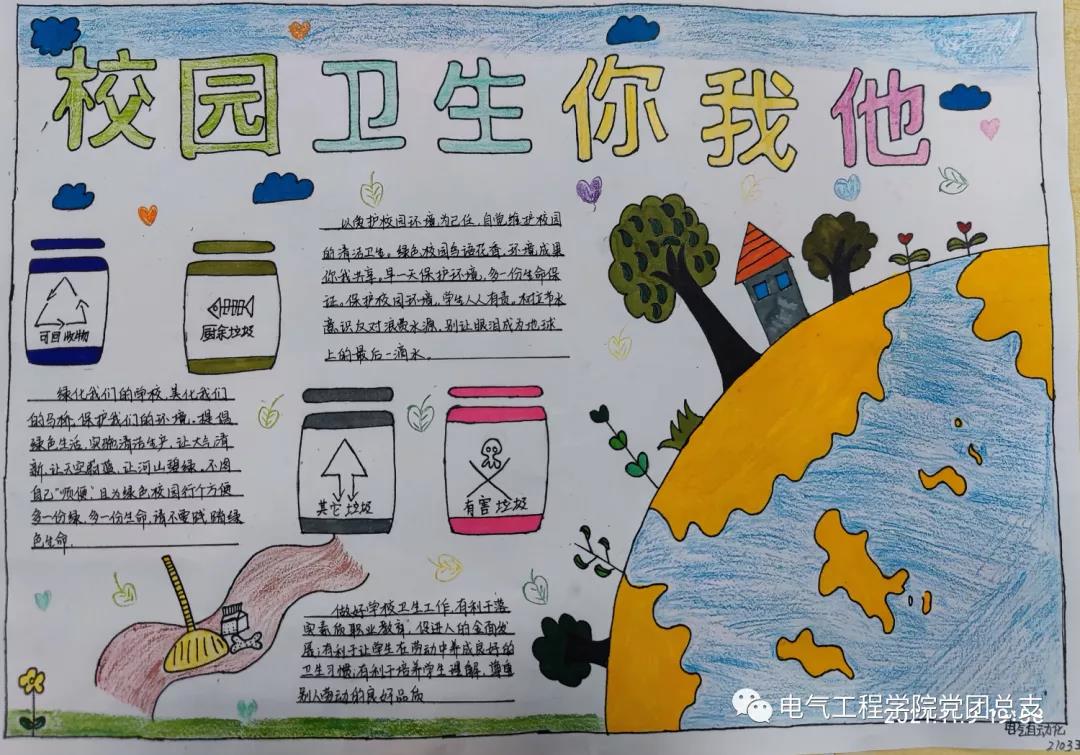 校园卫生你我他
以爱护校园环境为己任,自觉维护校园
的清洁卫生。绿色校园鸟语花香,环境成果
你我共享。早一天保护环境,多一份生命保
证。保护校园环境,学生人人有责。树立节水
意识反对浪费水源,别让眼泪成为地球
上的最后一滴水。
可回收物
厨余垃圾
绿化我们的学校,美化我们
的马桥,保护我们的环境。提倡
绿色生活,实施清洁生产,让大气清
新,让天空蔚蓝,让河山碧绿,不图
自己"顺便",且为绿色校园行个方便
多一份绿,多一份生命,请不要践踏绿
色生命.
其它垃圾
有害垃圾
做好学校卫生工作,有利于落
实素质职业教育,促进人的全面发
展;有利于让学生在劳动中养成良好的
卫生习惯;有利于培养学生理解,尊重
别人劳动的良好品质
电气工程学院党团总支
电气自动化
21033